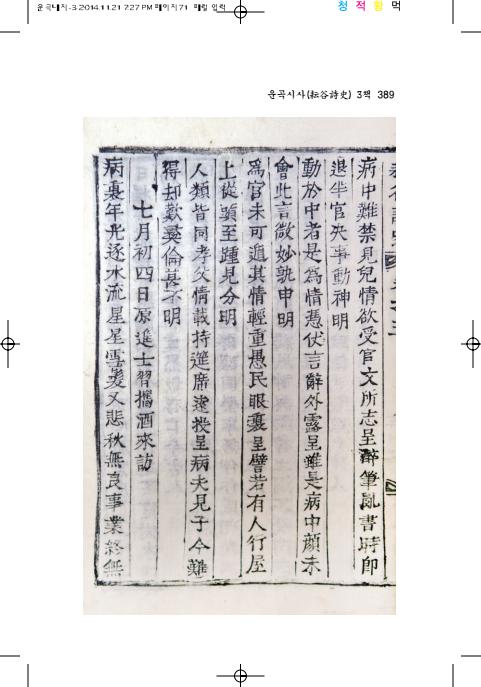 운곡내지-3.2014.11.21 7:27 PM 페이지71 메일 입력
청 적 황 먹
운곡시사(耘谷詩史) 3책 389
病中難禁見兒情欲受官文所志呈醉筆亂書時卽
退半官失事動神明
動於中者是爲情憑伏言辭外露呈雖是病中顔未
會此言微妙孰申明
爲官未可遁其情輕重愚民眼裏呈譬若有人行屋
上從頭至踵見分明
人類皆同孝父情載持筵席遠投呈病夫見子今難
得却歎彛倫甚不明
七月初四日原進士習携酒來訪
病裏年光逐水流星星雪髮又悲秋無良事業終無